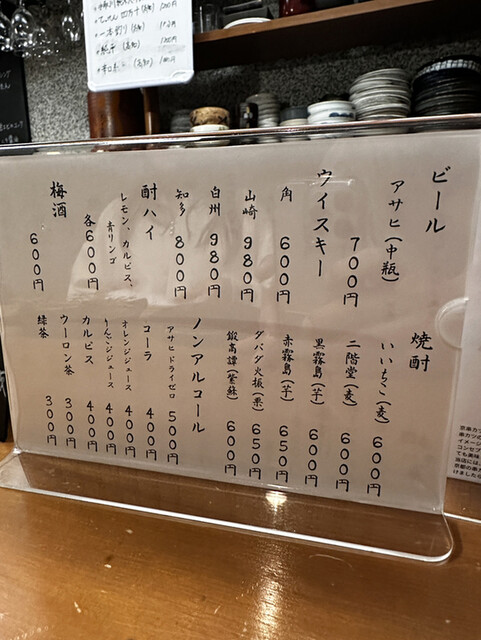 ビール
アサヒ(中瓶)
700円
ウイスキー
角 600円
山崎 980円
白州 980円
知多 800円
酎ハイ
レモン、カルピス、
青リンゴ
各600円
梅酒 600円
焼酎
いいちこ(麦) 600円
二階堂(麦) 600円
黒霧島(芋) 600円
赤霧島(芋) 650円
ダバダ火振(栗) 650円
鍛高譚(紫蘇) 600円
ノンアルコール
アサヒドライゼロ 500円
コーラ 400円
オレンジジュース 400円
りんごジュース 400円
カルピス 400円
ウーロン茶 300円
緑茶 300円